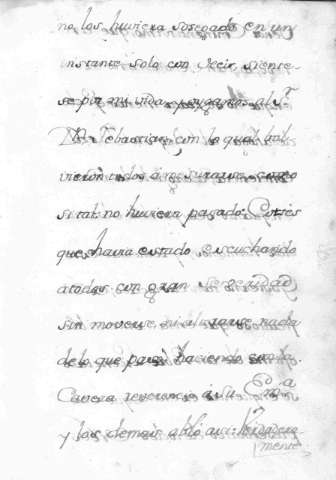 no los huviera sosegado en un
instante solo con decir siente-
se por mi vida y oygamos al S.r
D.n Sebastian, con lo qual bol
vieron todos a sosegarse como
si tal no huviera pasado. Cortès
que havia estado escuchando
a todos con gran serenidad
sin moverse, ni alterarse nada
de lo que pasó, haciendo con la
Cavera reverencia à su
y los demàs abló asi: Verdadera
mente